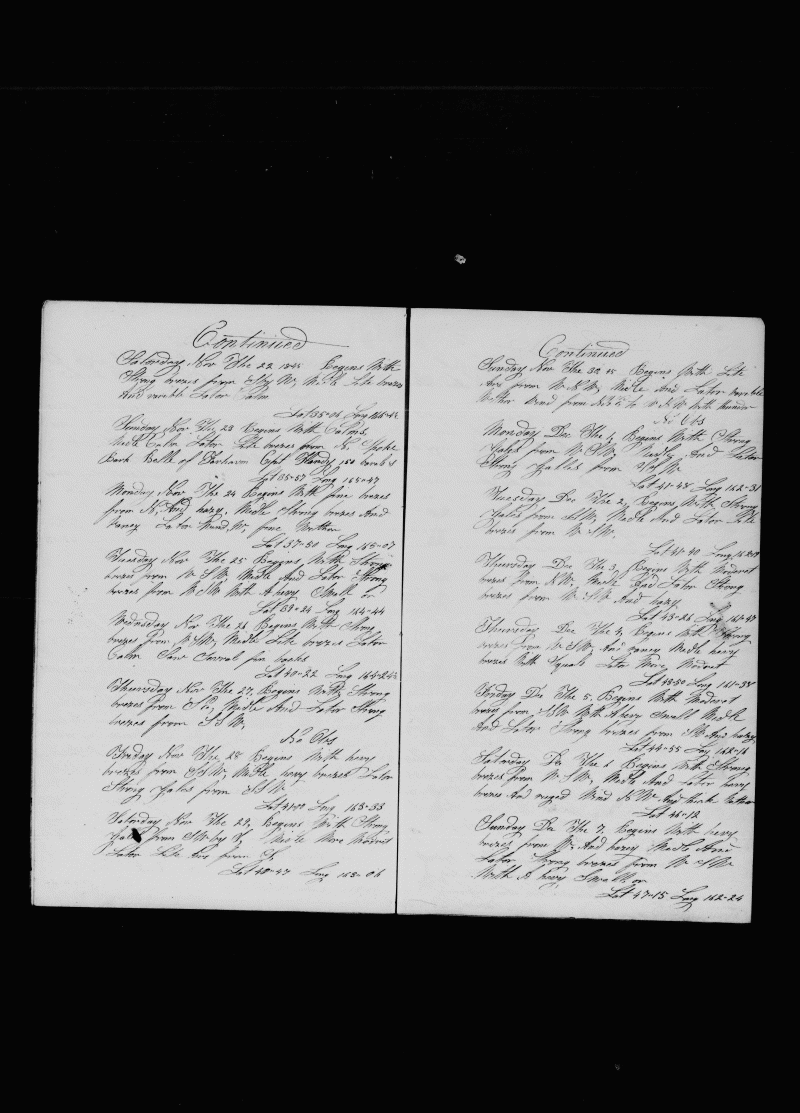 Continued
Saturday Nov The 22 1845 Begins With
Strong brezes from S by W, Midle Lite brezes
And varible Later Calm
Lat 35-06 Long 166-42
Sunday Nov The 23 Begins With Calms,
Midle Calm Later Lite brezes from N. Spoke
Bark Belle of Fairhaven Capt Handy 150 barels
Lat 35-57 Long 165-47
Monday Nov The 24 Begins With fine brezes
from N, And hazy, Midle Strong brezes And
Later Wind, W, fine Wether
Lat 37-50 Long 165-07
Tuesday Nov The 25 Begins With Strong
brezes from W S W Midle And Later Strong
brezes from W S W With A hevy Swell on
Lat 39-24 Long 164-44
Wednesday Nov The 26 Begins With Strong
brezes from W S W, Midle Lite brezes Later
Calm
Lat 40-22 Long 164-24
Thursday Nov The 27, Begins With Strong
brezes from Midle And Later Strong
brezes from S S W,
No Obs
Friday Nov The 28 Begins With hevy
brezes from S S W, Midle hevy brezes Later
Strong Gales from S S W
Lat 41-00 Long 163-33
Saturday Nov The 29, Begins With Strong
Gales from Midle More Moderet
Later Lite Airs from
Lat 40-47 Long 163-06
Continued
Sunday Nov The 30 45 Begins With Lite
Airs from Midle And Later varible
Wether Wind from to With thunder
No Obs
Monday Dec The 1, Begins With Strong
Gales from W S W, Midle And Later
Strong Galles from
Lat 41-48 Long 162-31
Tuesday Dec The 2, Begins With Strong
Gales from S S W, Midle And Later Lite
brezes from W S W.
Lat 41-40 Long
Thursday Dec The 3, Begins With Moderet
brezes from Midle And Later Strong
brezes from And hazy
Lat 43-26 Long 161-47
Thursday Dec The 4, Begins With Strong
brezes from W S W, And Midle hevy
brezes With Squals Later More Moderet
Lat 43-50 Long 161-38
Friday Dec The 5, Begins With Moderet
brezes from With A hevy Swell Midle
And Later Strong brezes from And hazey
Lat 44-55 Long 162-16
Saturday Dec The 6 Begins With Strong
brezes from W S W, Midle And Later hevy
brezes And ruged Wind And thick Wether
Lat 46-12
Sunday Dec The 7, Begins With hevy
brezes from W. And hazey Midle And
Later, Strong brezes from W S W
With A hevy Swell on
Lat 47-15 Long 162-24